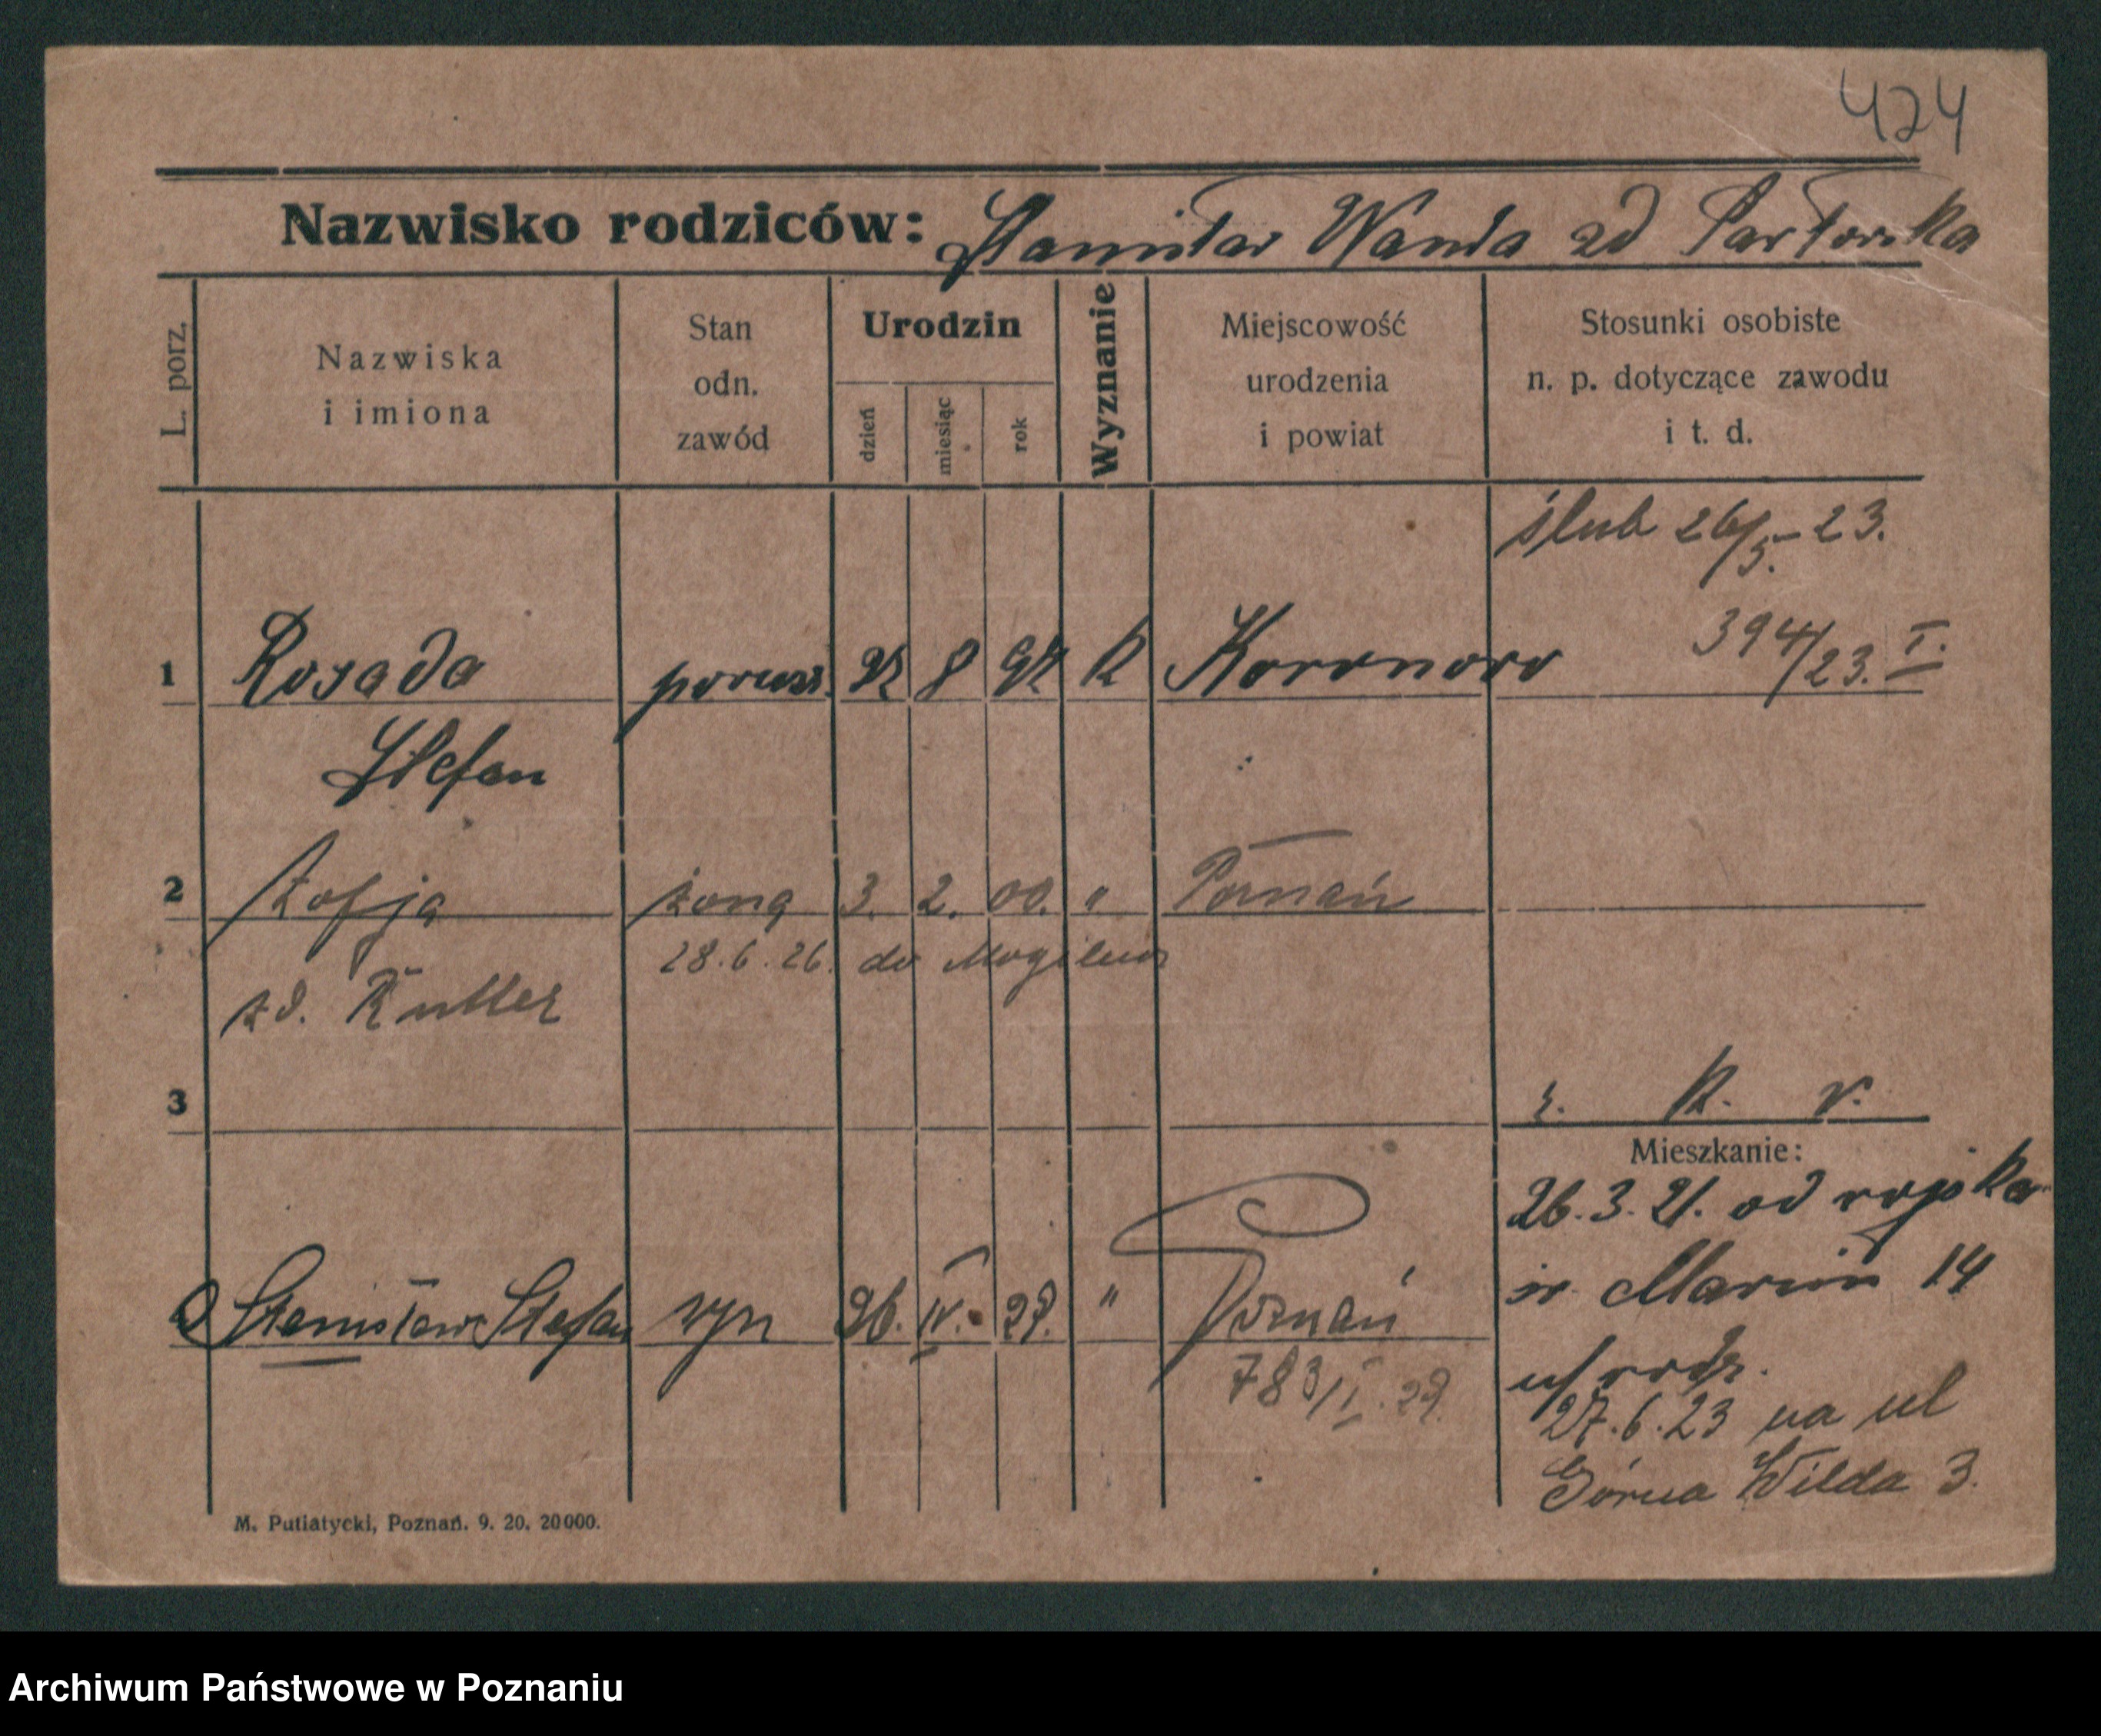 424
Nazwisko rodziców: Stanisław Wanda zd
L. porz.
Nazwiska
i imiona
Stan
odn.
zawód
Urodzin
dzień
miesiąc
rok
Wyznanie
Miejscowość
urodzenia
i powiat
Stosunki osobiste
n. p. dotyczące zawodu
i t. d.
ślub 26/5.-23.
394/23. I.
1 Rosada 8 97 k Koronowo
Stefan
2 Zofja żona 3. 2. 00. " Poznań
28.6.26. do Mogilna
zd. Rutter
3
k. v.
Mieszkanie:
26.3.21. od wojska
14
Stanisław Stefan syn 26. IV. 29. " Poznań
u/rodz.
783/I.29.
27.6.23 na ul
Górna Wilda 3.
M. Putiatycki, Poznań. 9. 20. 20000.
Archiwum Państwowe w Poznaniu